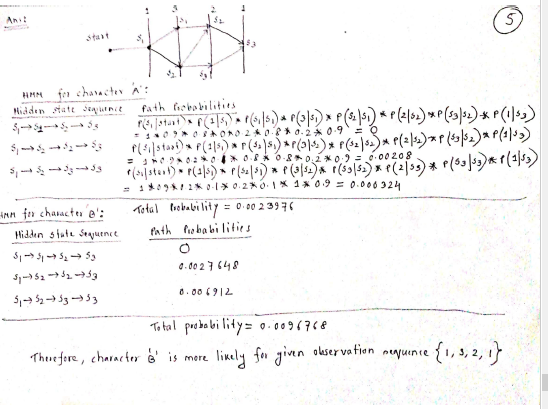 Ans:
5
1 3 2 1
Start S1 S1 S2 S3
S2 S3
HMM for character 'A':
Hidden state sequence Path Probabilities
S1→S1→S2→S3 P(S1|start) * P(1|S1) * P(S1|S1) * P(3|S1) * P(S2|S1) * P(2|S2) * P(S3|S2) * P(1|S3)
= 1*0.9*0.8*0*0.2*0.8*0.2*0.9 = 0
S1→S2→S2→S3 P(S1|start) * P(1|S1) * P(S2|S1) * P(3|S2) * P(S2|S2) * P(2|S2) * P(S3|S2) * P(1|S3)
= 0.00208
S1→S2→S3→S3 P(S1|start) * P(1|S1) * P(S2|S1) * P(3|S2) * P(S3|S2) * P(2|S3) * P(S3|S3) * P(1|S3)
= 1*0.9*0.2*0.1*0.2*0.1*1*0.9 = 0.000324
Total Probability = 0.0023976
HMM for character 'B':
Hidden State Sequence Path Probabilities
S1→S1→S2→S3 0
S1→S2→S2→S3 0.0027648
S1→S2→S3→S3 0.006912
Total probability = 0.0096768
Therefore, character 'B' is more likely for given observation sequence {1, 3, 2, 1}